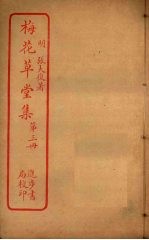 明 張大復著
梅花草堂集 第三冊
進步書
局校印